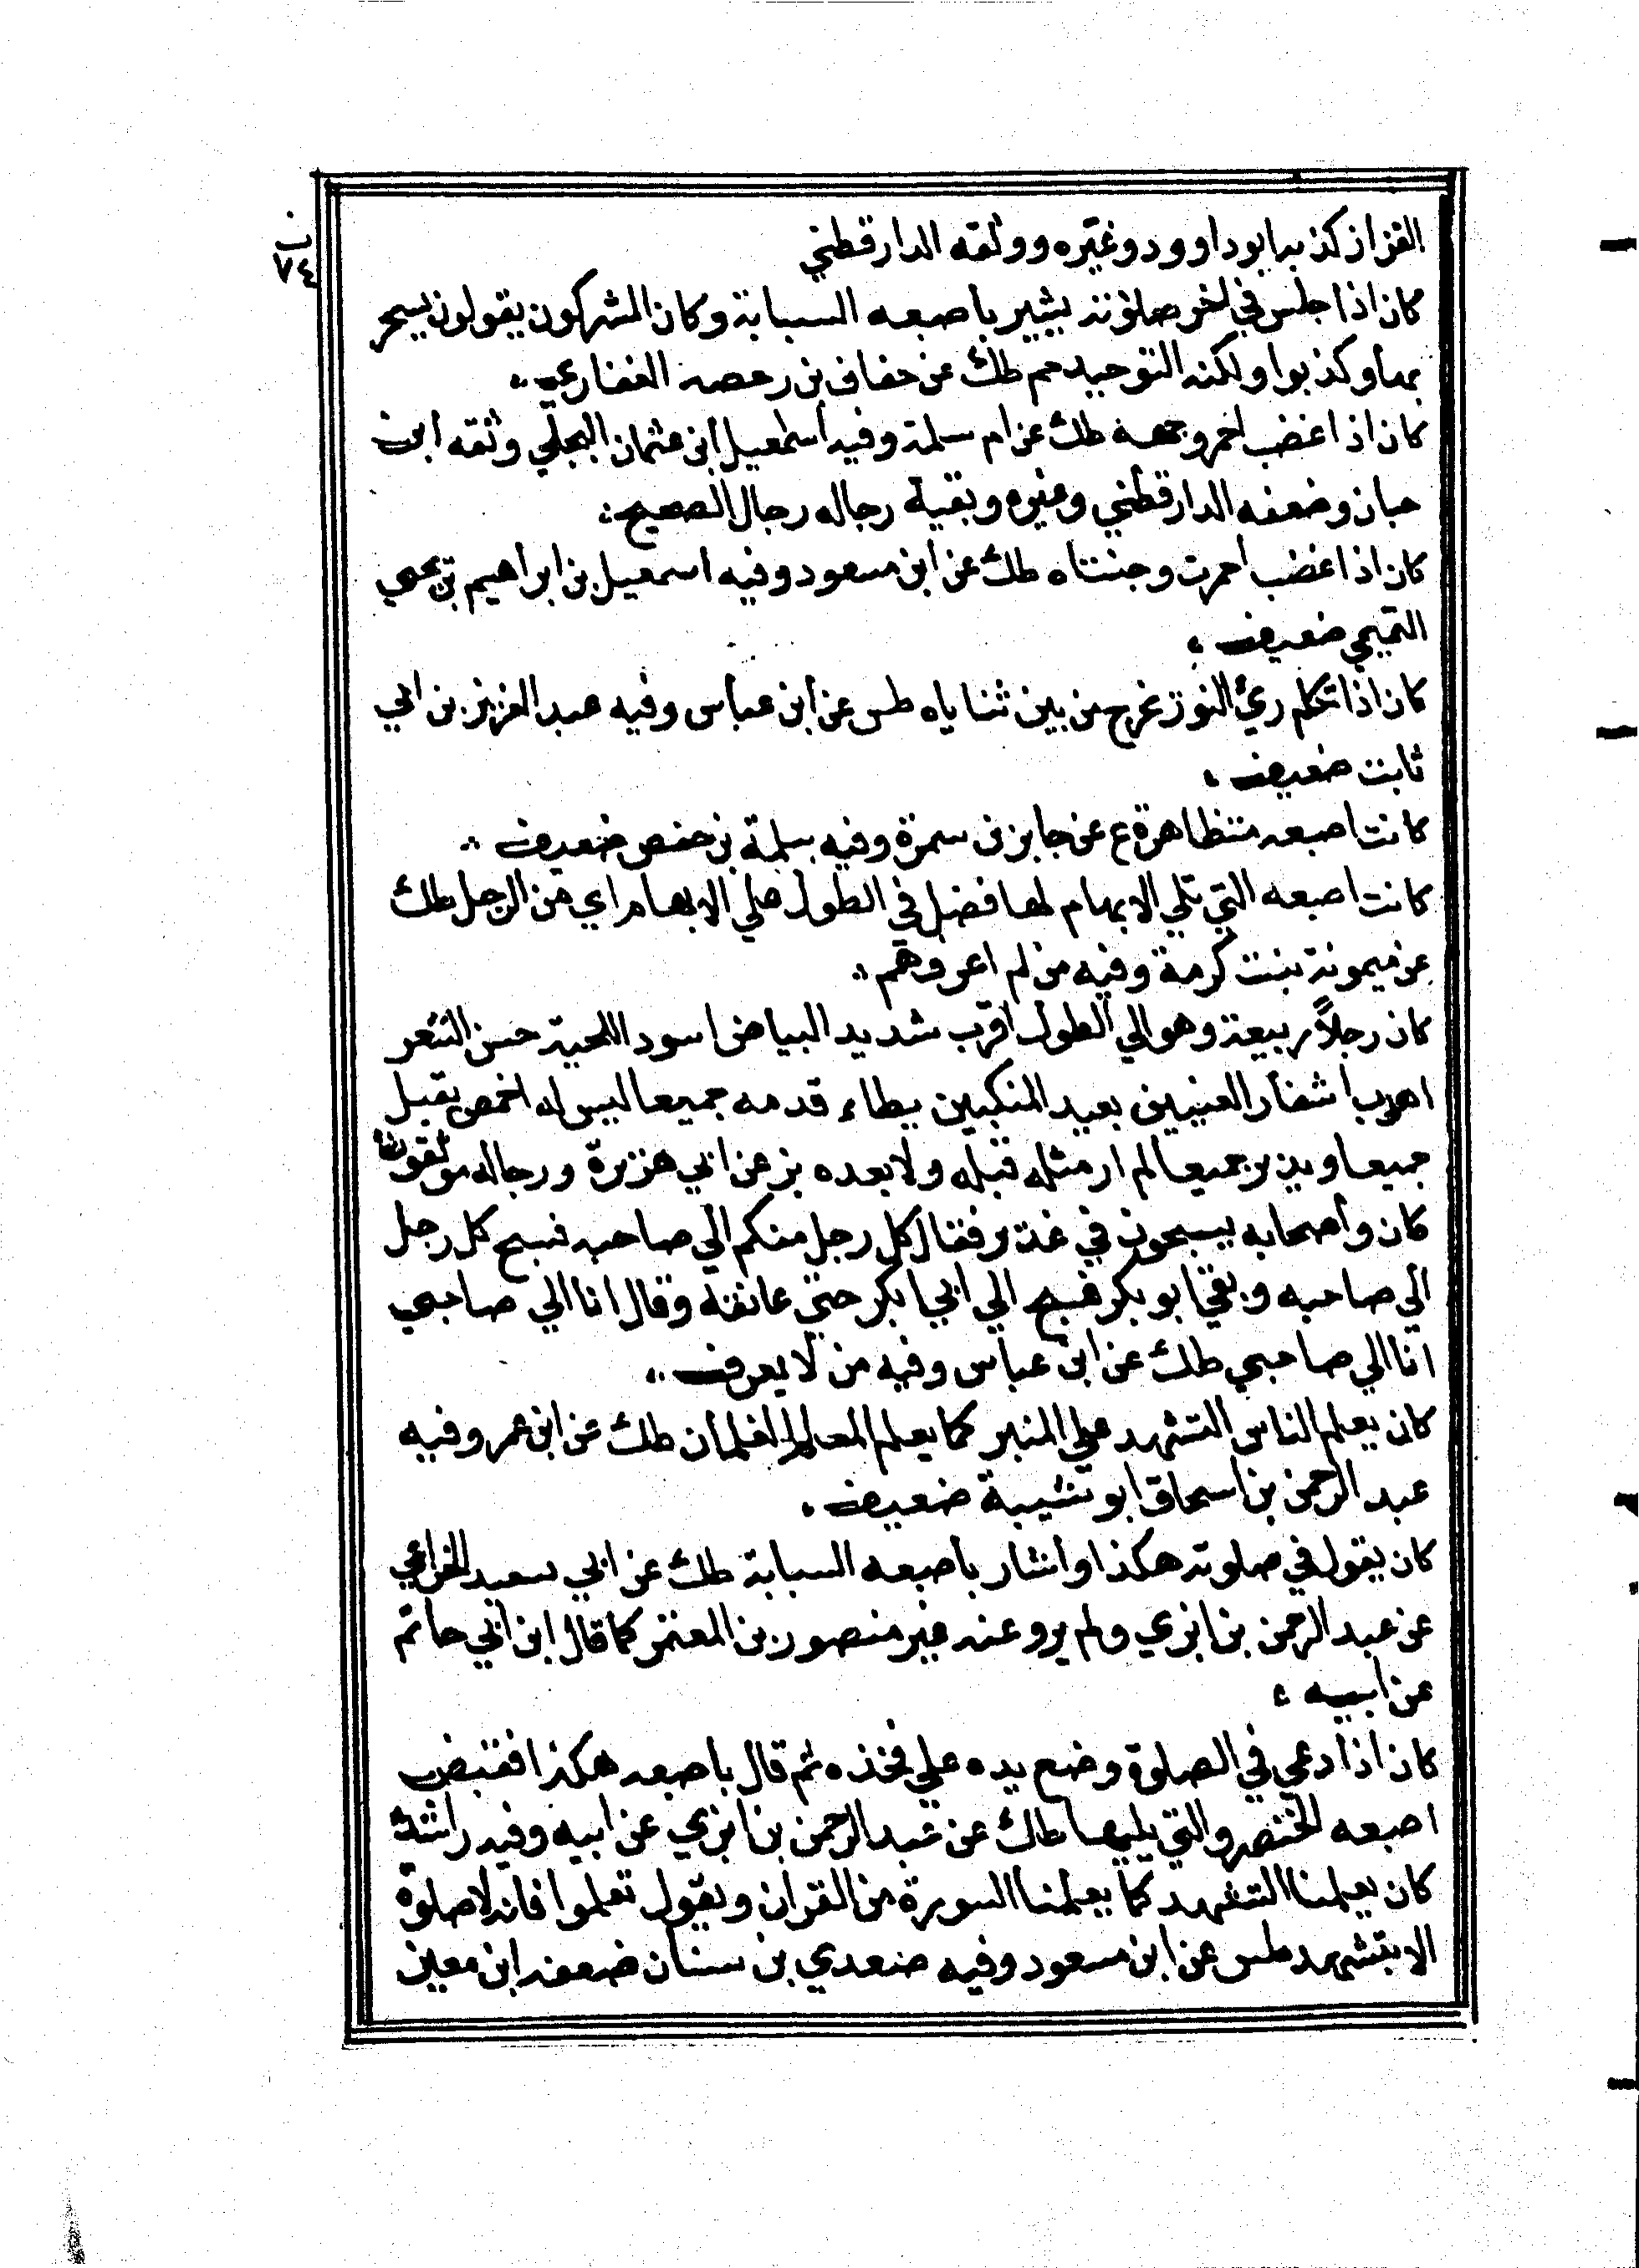 القزاز كذبه ابو داوود وغيره ووثقه الدارقطني
كان اذا جلس في اخر صلوته يشير باصبعه السبابة وكان المشركون يقولون يسحر
بها وكذبوا ولكنه التوحيد حم طك عن خفاف بن رحصه الغفاري
كان اذا غضب احمر وجهه طك عن ام سلمة وفيه اسمعيل ابن عثمان البجلي وثقه ابن
حبان وضعفه الدارقطني وغيره وبقية رجاله رجال الصحيح
كان اذا غضب احمرت وجنتاه طك عن ابن مسعود وفيه اسمعيل بن ابراهيم بن يحيي
التميمي ضعيف
كان اذا تكلم رئ النور يخرج من بين ثناياه طس عن ابن عباس وفيه عبد العزيز بن ابي
ثابت ضعيف
كانت اصبعه متظاهرة ع عن جابر بن سمرة وفيه سلمة بن حفص ضعيف
كانت اصبعه التي تلي الابهام لها فضل في الطول علي الابهام اي من الرجل طك
عن ميمونة بنت كرمة وفيه من لم اعروهم
كان رجلاً ربيعة وهو الي الطول اقرب شديد البياض اسود اللحية حسن الثغر
اهدب اشفار العينين بعيد المنكبين يطاء قدمه جميعا ليس له اخمص يقبل
جميعا ويدبر جميعا لم ار مثله قبله ولا بعده بز عن ابي هريرة ورجاله موثقون
كان واصحابه يسبحون في غدير فقال كل رجل منكم الي صاحبه فسبح كل رجل
الي صاحبه وبقي ابو بكر فسبح الي ابي بكر حتي عانقه وقال انا الي صاحبي
انا الي صاحبي طك عن ابن عباس وفيه من لا يعرف
كان يعلم الناس التشهد علي المنبر كما يعلم المعالم الغلمان طك عن ابن عمر وفيه
عبد الرحمن بن اسحاق ابو شيبة ضعيف
كان يقول في صلوته هكذا واشار باصبعه السبابة طك عن ابي سعيد الخزاعي
عن عبد الرحمن بن ابزي ولم يرو عنه غير منصور بن المعتمر كما قال ابن ابي حاتم
عن ابيه
كان اذا دعي في الصلوة وضع يده علي فخذه ثم قال باصبعه هكذا فقبض
اصبعه الخنصر والتي يليها طك عن عبد الرحمن بن ابزي عن ابيه وفيه راشد
كان يعلمنا التشهد كما يعلمنا السورة من القران ويقول تعلموا فانه لا صلوة
الا بتشهد طس عن ابن مسعود وفيه صعدي بن سنان ضعفه ابن معين